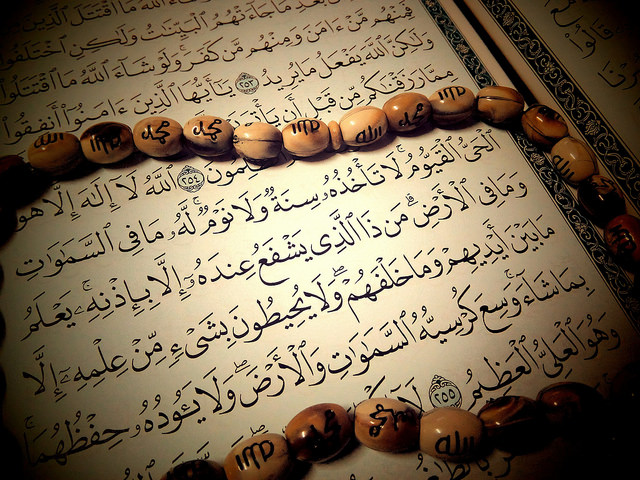 شَآءَ ٱللَّهُ مَا ٱقْتَتَلَ ٱلَّذِينَ
بَعْدِ مَا جَآءَتْهُمُ ٱلْبَيِّنَٰتُ وَلَٰكِنِ ٱخْتَلَفُوا۟
فَمِنْهُم مَّنْ ءَامَنَ وَمِنْهُم مَّن كَفَرَ وَلَوْ شَآءَ ٱللَّهُ مَا ٱقْتَتَلُوا۟
وَلَٰكِنَّ ٱللَّهَ يَفْعَلُ مَا يُرِيدُ ٢٥٣ يَٰٓأَيُّهَا ٱلَّذِينَ ءَامَنُوٓا۟ أَنفِقُوا۟
مِمَّا رَزَقْنَٰكُم مِّن قَبْلِ أَن
الله محمد محمد الله محمد الله
٢٥٤ ٱللَّهُ لَآ إِلَٰهَ إِلَّا هُوَ
ٱلْحَىُّ ٱلْقَيُّومُ لَا تَأْخُذُهُۥ سِنَةٌ وَلَا نَوْمٌ لَّهُۥ مَا فِى ٱلسَّمَٰوَٰتِ
وَمَا فِى ٱلْأَرْضِ مَن ذَا ٱلَّذِى يَشْفَعُ عِندَهُۥٓ إِلَّا بِإِذْنِهِۦ يَعْلَمُ
مَا بَيْنَ أَيْدِيهِمْ وَمَا خَلْفَهُمْ وَلَا يُحِيطُونَ بِشَىْءٍ مِّنْ عِلْمِهِۦٓ إِلَّا
بِمَا شَآءَ وَسِعَ كُرْسِيُّهُ ٱلسَّمَٰوَٰتِ وَٱلْأَرْضَ وَلَا يَـُٔودُهُۥ حِفْظُهُمَا
وَهُوَ ٱلْعَلِىُّ ٱلْعَظِيمُ ٢٥٥ لَآ
محمد الله